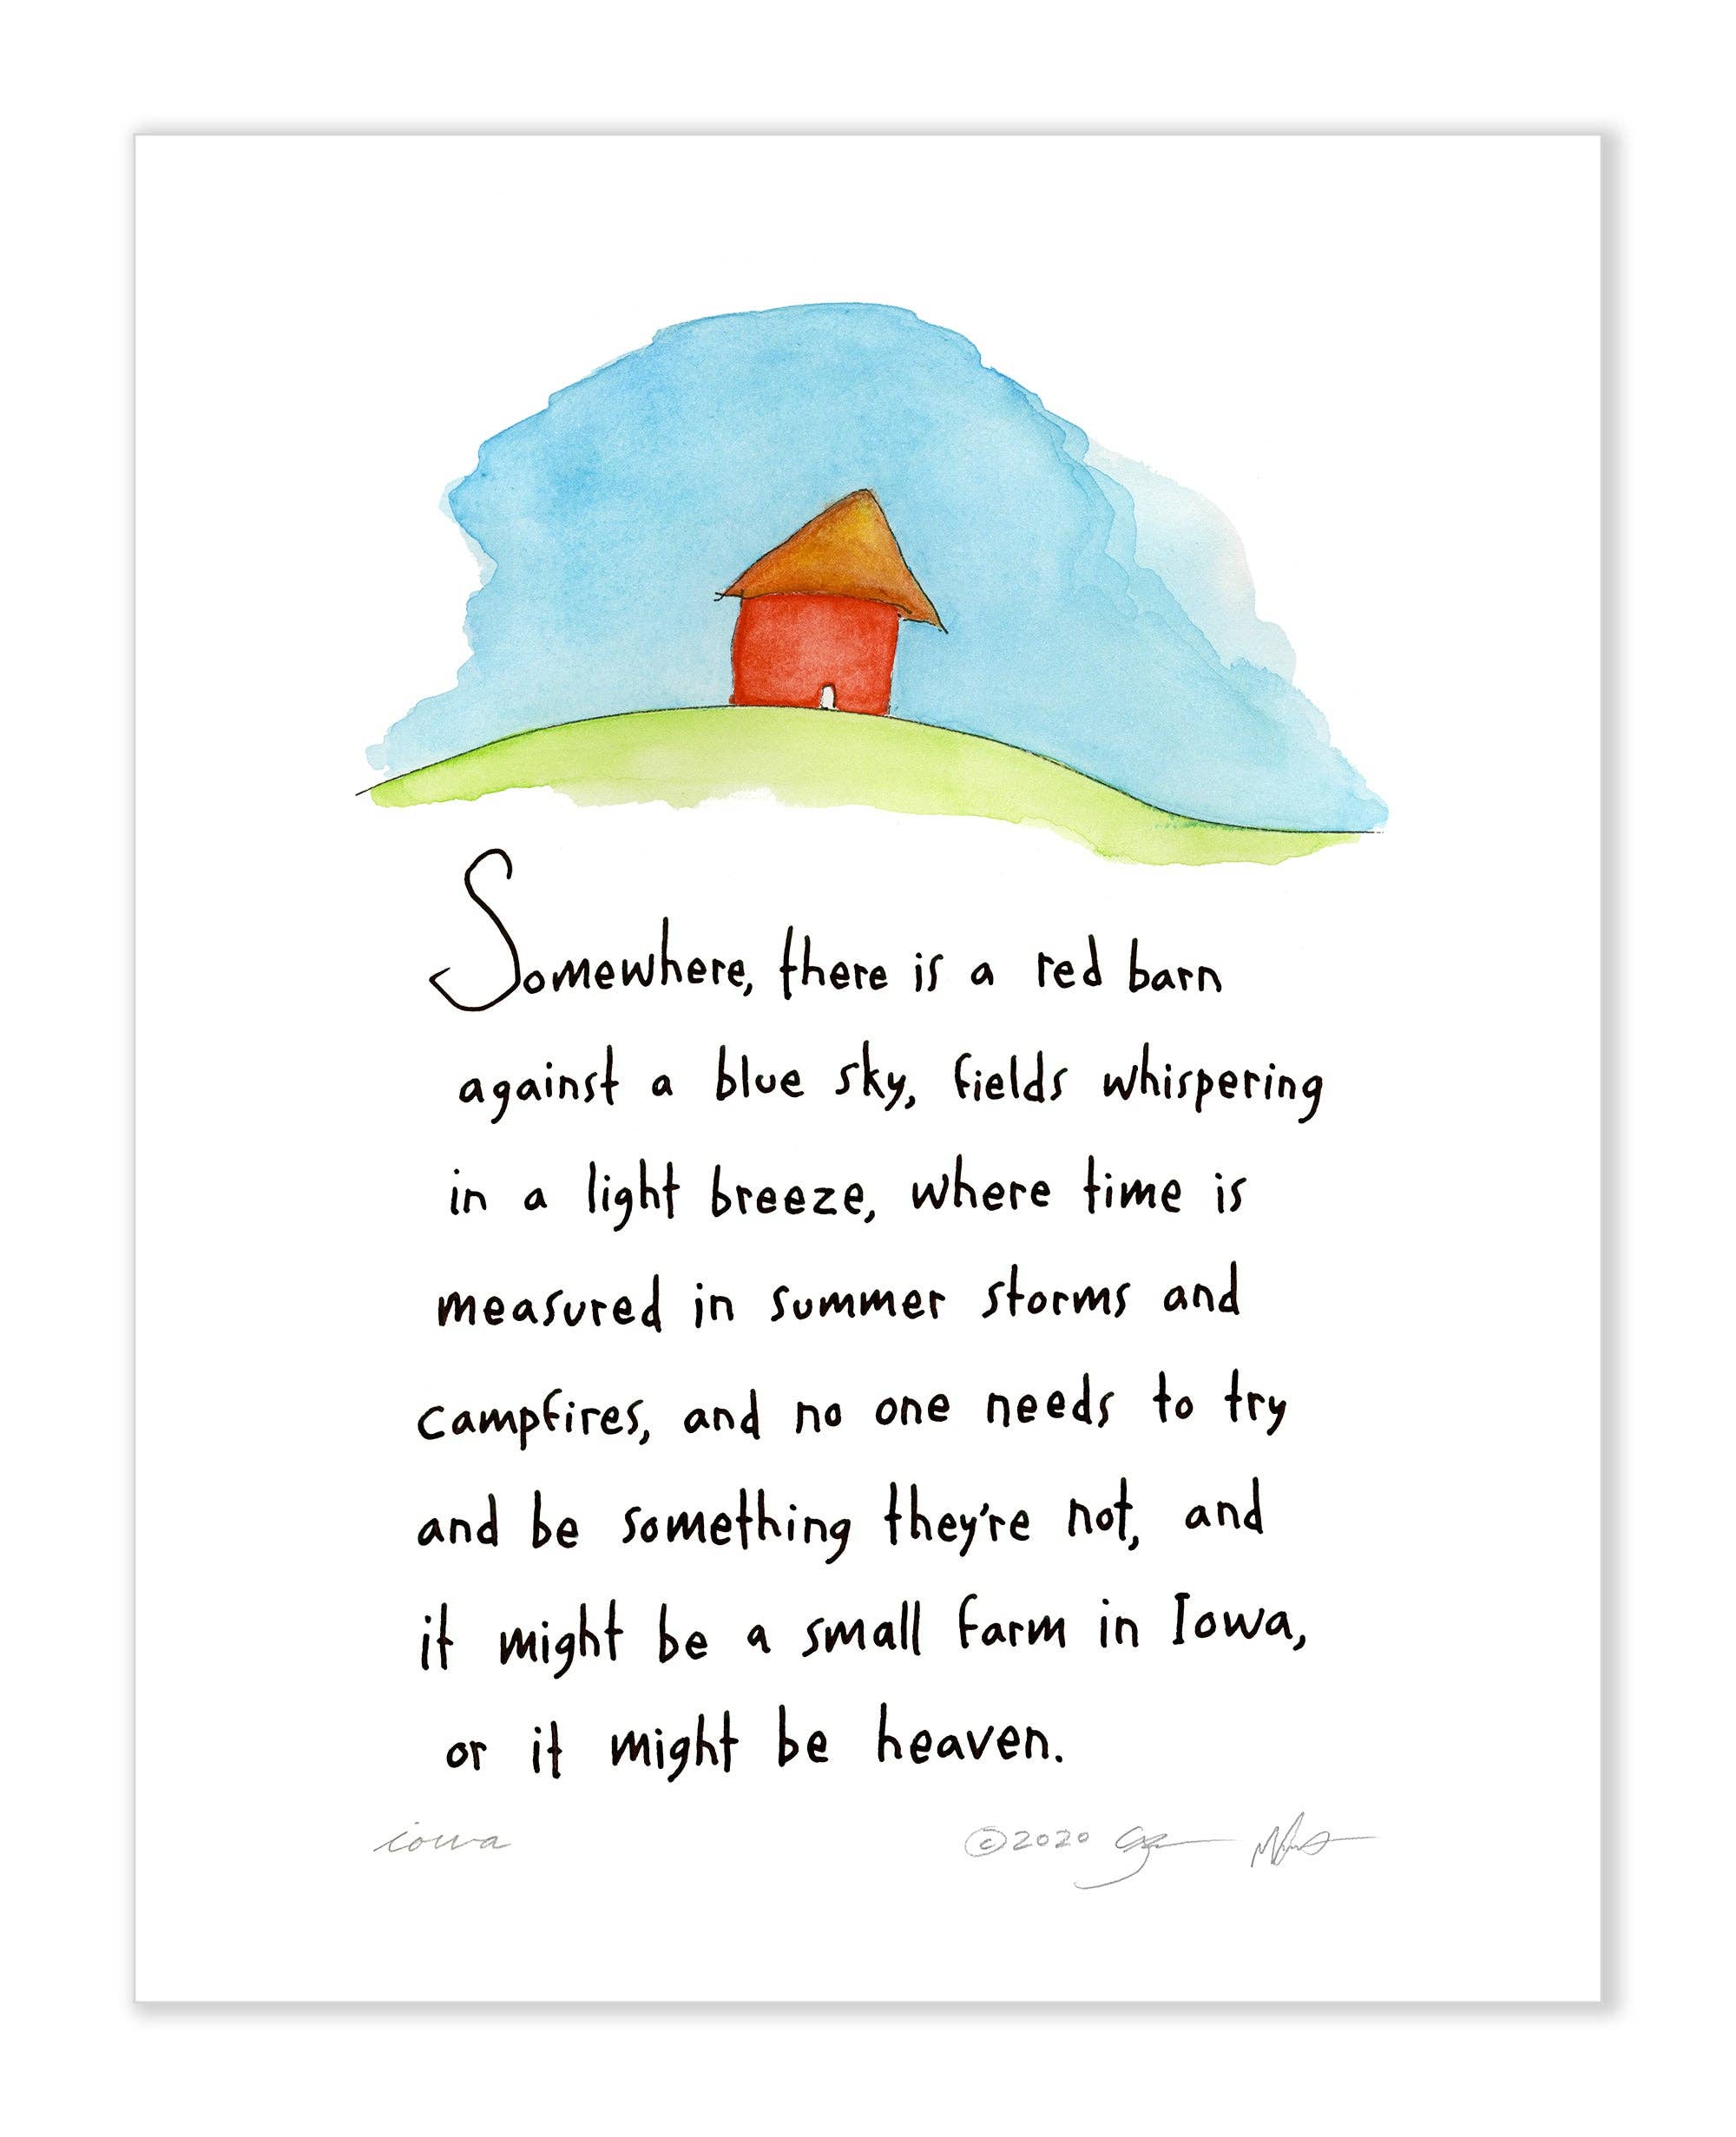 Somewhere, there is a red barn
against a blue sky, fields whispering
in a light breeze, where time is
measured in summer storms and
campfires, and no one needs to try
and be something they're not, and
it might be a small farm in Iowa,
or it might be heaven.
iowa
©2020